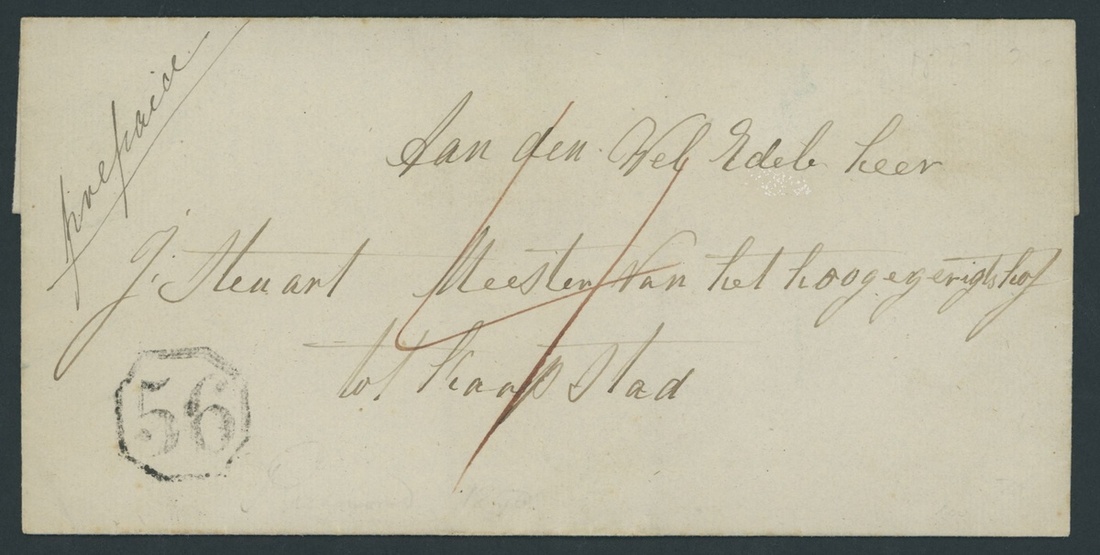 prepaid
Aan den Wel Edele heer
J. Steuart Meester van het hoogegerigtshof
tot Kaapstad
4
56